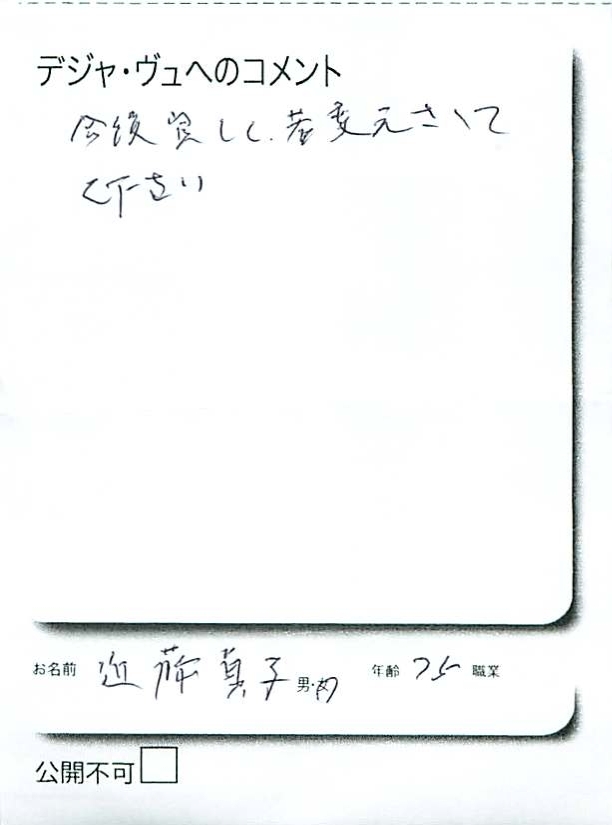 デジャ・ヴュへのコメント
今後 しく、若変えさして
下さい
お名前 近藤真子 男・女 年齢 75 職業
公開不可